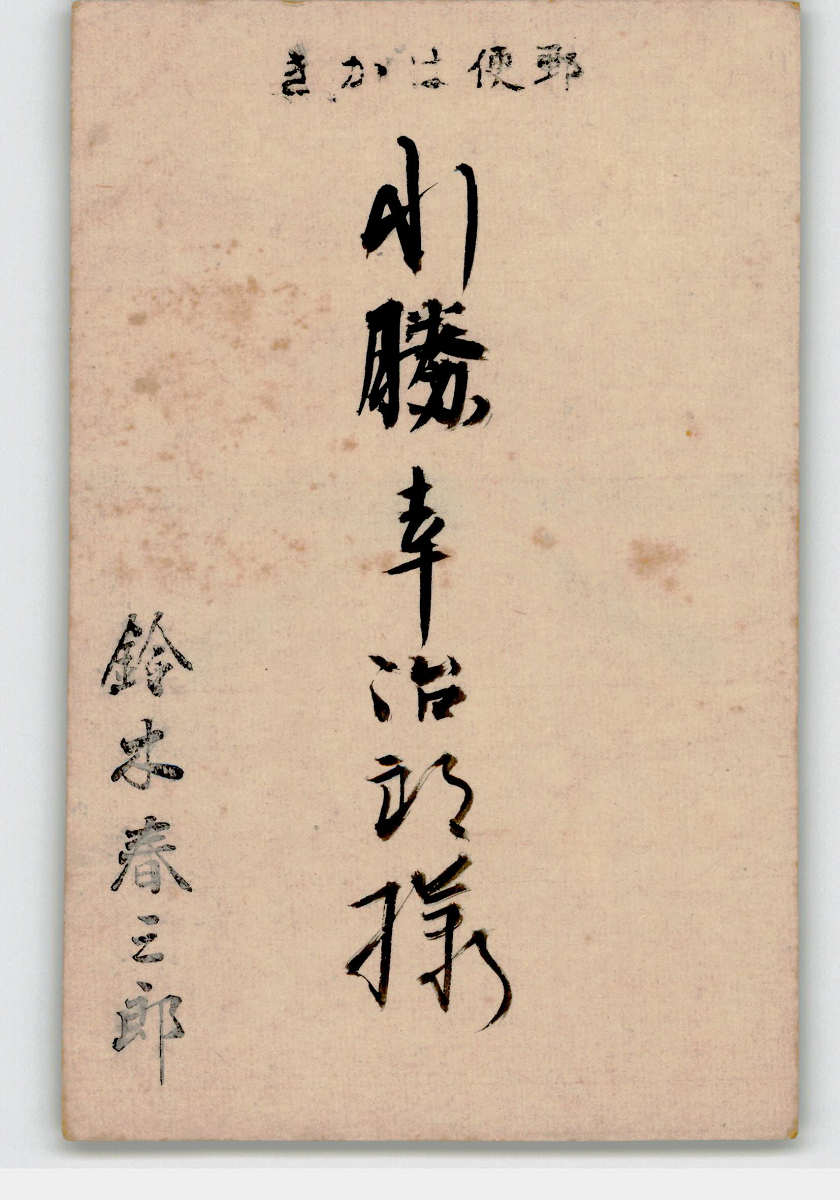 郵便はかき
川勝幸治郎様
鈴木春三郎